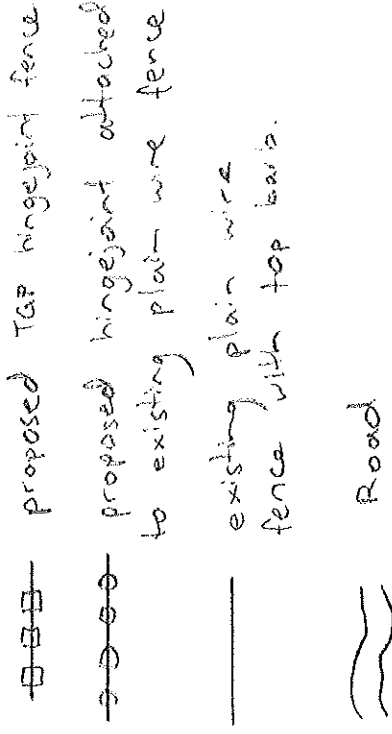 proposed TGP hingejoint fence
proposed hingejoint attached
to existing plain wire fence
existing plain wire
fence with top barb.
Road